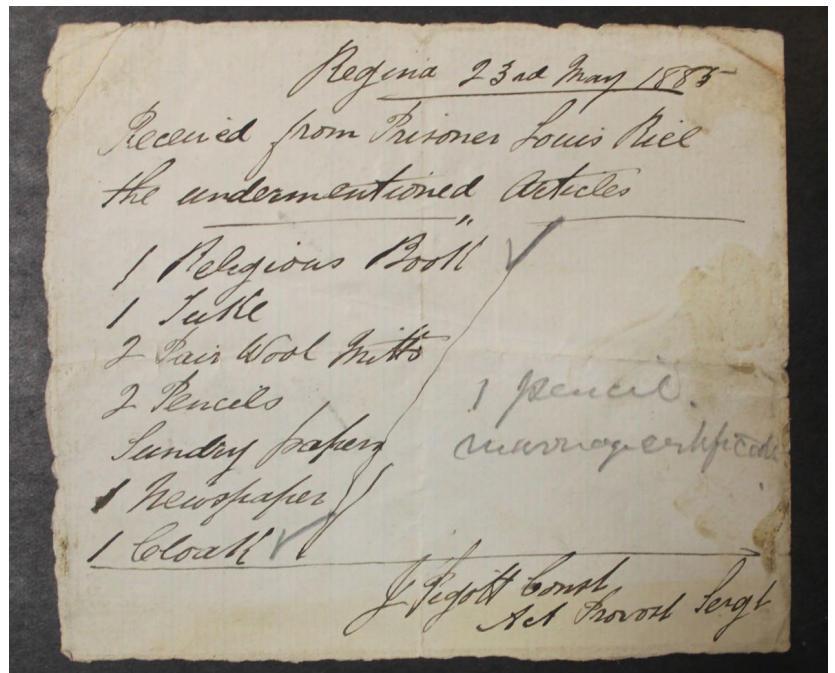 Regina 23rd May 1885
Received from Prisoner Louis Riel
the undermentioned Articles
1 Religious Book
1 Tuke
2 Pair Wool Mitts
2 Pencils
Sundry papers
1 Newspaper
1 Cloak
1 pencil.
marriage certificate
J Pigott Const
Act Provost Sergt